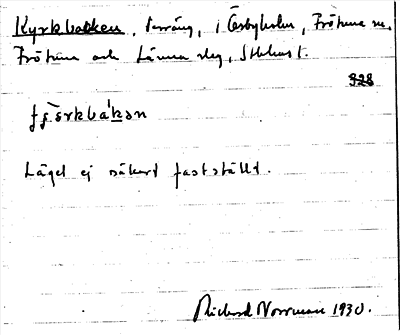 Kyrkbacken, terräng, i Österholm, Frötuna sn,
Frötuna och Länna slg, Sthlms l.
928
Läget ej säkert fastställt.
Richard Norrman 1930.